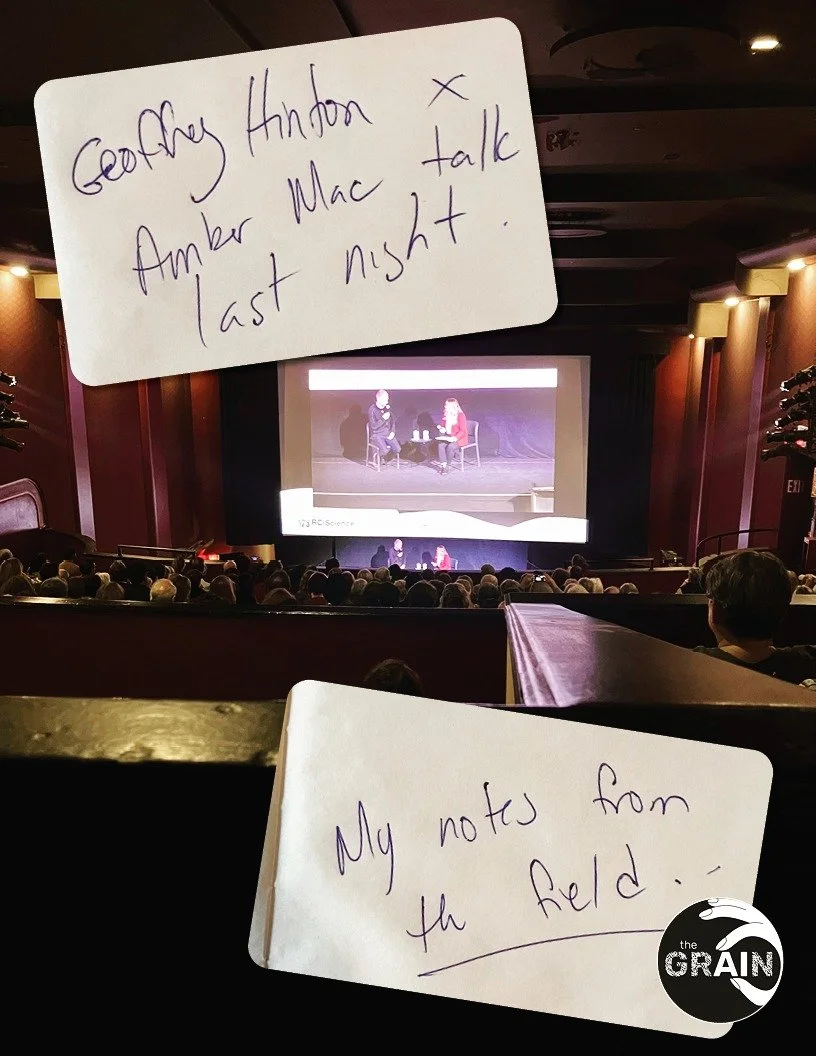 Geoffrey Hinton x
Amber Mac talk
last night.
EXIT
RCIScience
My notes from
th field..-
the
GRAIN